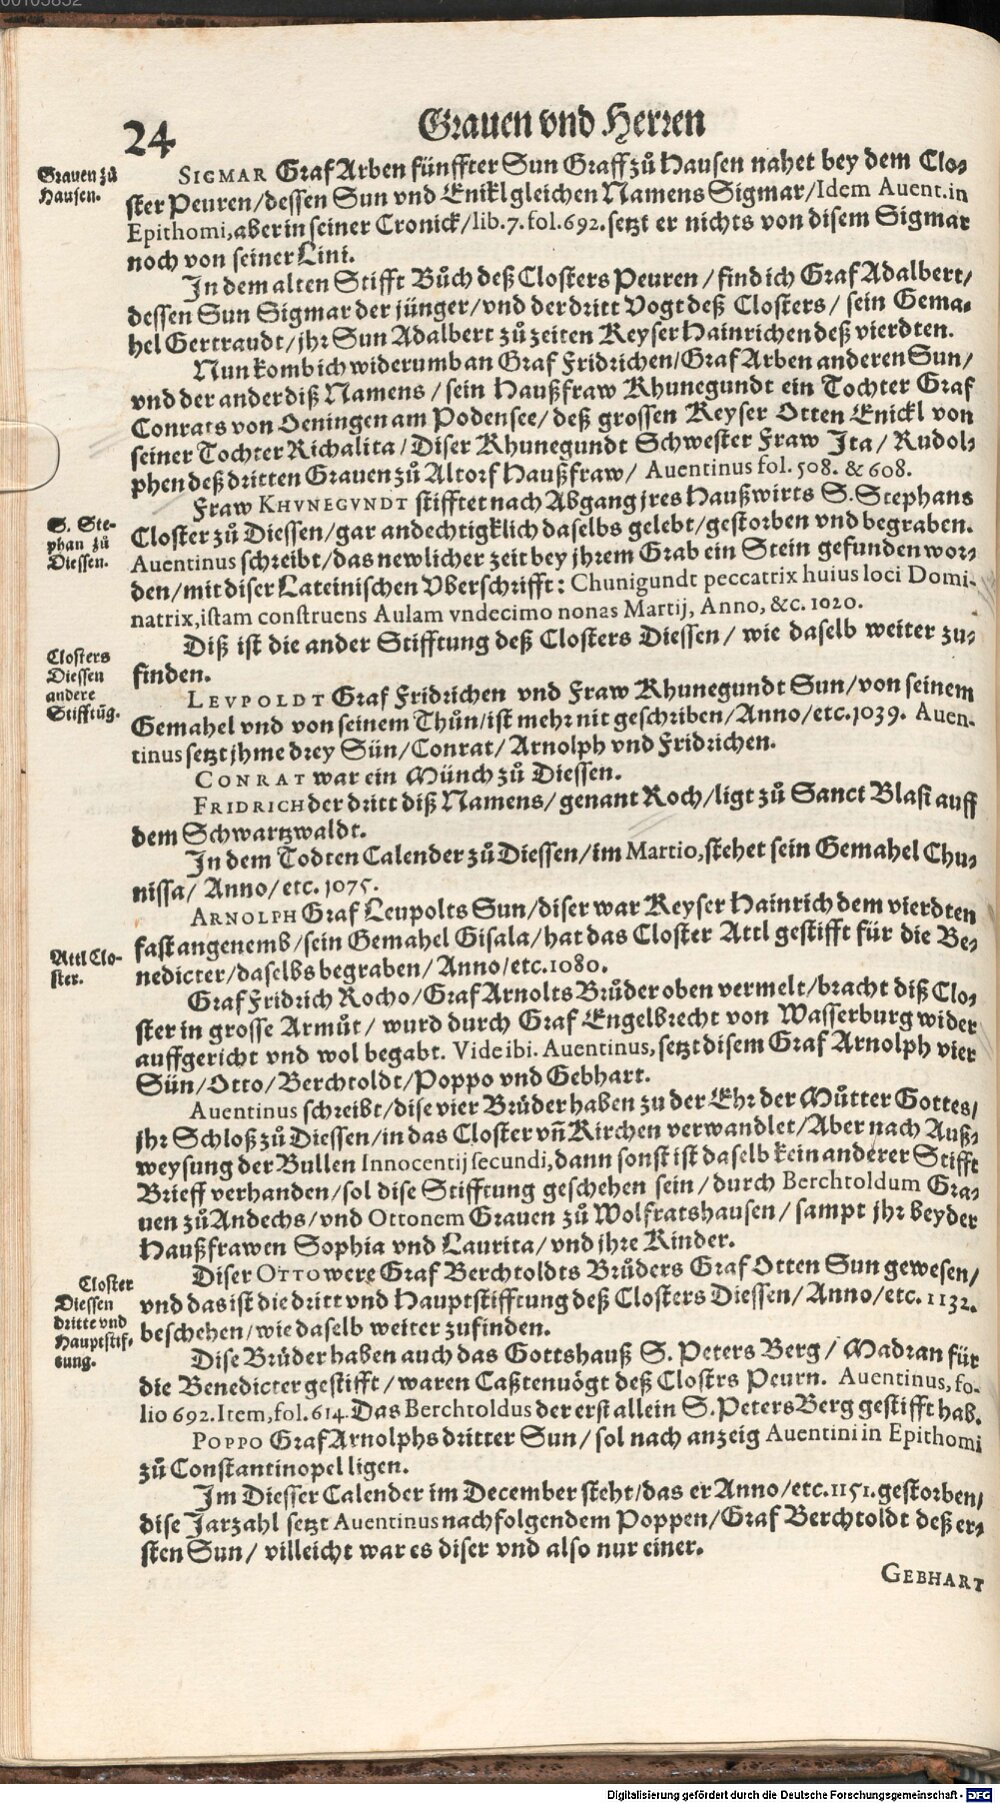 24
Grauen vnd Herren
Grauen zů
Hausen.
SIGMAR Graf Arben fünffter Sun Graff zů Hausen nahet bey dem Clo-
ster Peuren/dessen Sun vnd Enikl gleichen Namens Sigmar/Idem Auent.in
Epithomi,aber in seiner Cronick/lib.7.fol.692.setzt er nichts von disem Sigmar
noch von seiner Lini.
In dem alten Stifft Bůch deß Closters Peuren/find ich Graf Adalbert/
dessen Sun Sigmar der jünger/vnd der dritt Vogt deß Closters/sein Gema-
hel Gertraudt/jhr Sun Adalbert zů zeiten Keyser Hainrichen deß vierdten.
Nun komb ich widerumb an Graf Fridrichen/Graf Arben anderen Sun/
vnd der ander diß Namens/sein Haußfraw Khunegundt ein Tochter Graf
Conrats von Oeningen am Podensee/deß grossen Keyser Otten Enickl von
seiner Tochter Richalita/Diser Khunegundt Schwester Fraw Ita/Rudol-
phen deß dritten Grauen zů Altorf Haußfraw/ Auentinus fol. 508. & 608.
S. Ste-
phan zů
Diessen.
Fraw KHVNEGVNDT stifftet nach Abgang jres Haußwirts S. Stephans
Closter zů Diessen/gar andechtigklich daselbs gelebt/gestorben vnd begraben.
Auentinus schreibt/das newlicher zeit bey jhrem Grab ein Stein gefunden wor-
den/mit diser Lateinischen Vberschrifft: Chunigundt peccatrix huius loci Domi-
natrix,istam construens Aulam vndecimo nonas Martij, Anno, &c. 1020.
Closters
Diessen
andere
Stifftūg.
Diß ist die ander Stifftung deß Closters Diessen/ wie daselb weiter zu-
finden.
LEVPOLDT Graf Fridrichen vnd Fraw Khunegundt Sun/von seinem
Gemahel vnd von seinem Thůn/ist mehr nit geschriben/Anno/etc.1039. Auen-
tinus setzt jhme drey Sün/Conrat/Arnolph vnd Fridrichen.
CONRAT war ein Münch zů Diessen.
FRIDRICH der dritt diß Namens/genant Roch/ligt zů Sanct Blasi auff
dem Schwartzwaldt.
In dem Todten Calender zů Diessen/im Martio,stehet sein Gemahel Chu-
nissa/ Anno/etc. 1075.
Attl Clo-
ster.
ARNOLPH Graf Leupolts Sun/diser war Keyser Hainrich dem vierdten
fast angenemb/sein Gemahel Gisala/hat das Closter Attl gestifft für die Be-
nedicter/daselbs begraben/Anno/etc.1080.
Graf Fridrich Rocho/Graf Arnolts Brůder oben vermelt/bracht diß Clo-
ster in grosse Armůt/ wurd durch Graf Engelbrecht von Wasserburg wider
auffgericht vnd wol begabt. Vide ibi. Auentinus, setzt disem Graf Arnolph vier
Sün/Otto/Berchtoldt/Poppo vnd Gebhart.
Auentinus schreibt/dise vier Brüder haben zu der Ehr der Můtter Gottes/
jhr Schloß zů Diessen/in das Closter vñ Kirchen verwandlet/Aber nach Auß-
weysung der Bullen Innocentij secundi,dann sonst ist daselb kein anderer Stifft
Brieff verhanden/sol dise Stifftung geschehen sein/durch Berchtoldum Gra-
uen zů Andechs/vnd Ottonem Grauen zů Wolfratshausen/sampt jhr beyder
Haußfrawen Sophia vnd Laurita/vnd jhre Kinder.
Closter
Diessen
dritte vnd
Hauptstif-
tung.
Diser OTTO were Graf Berchtoldts Brůders Graf Otten Sun gewesen/
vnd das ist die dritt vnd Hauptstifftung deß Closters Diessen/Anno/etc. 1132.
beschehen/wie daselb weiter zufinden.
Dise Brüder haben auch das Gottshauß S. Peters Berg/ Madran für
die Benedicter gestifft/waren Caßtenuögt deß Closters Peurn. Auentinus, fo-
lio 692.Item,fol.614.Das Berchtoldus der erst allein S.Peters Berg gestifft hab.
POPPO Graf Arnolphs dritter Sun/sol nach anzeig Auentini in Epithomi
zů Constantinopel ligen.
Im Diesser Calender im December steht/das er Anno/etc.1151.gestorben/
dise Jarzahl setzt Auentinus nachfolgendem Poppen/Graf Berchtoldt deß er-
sten Sun/ villeicht war es diser vnd also nur einer.
GEBHART
Digitalisierung gefördert durch die Deutsche Forschungsgemeinschaft - DFG